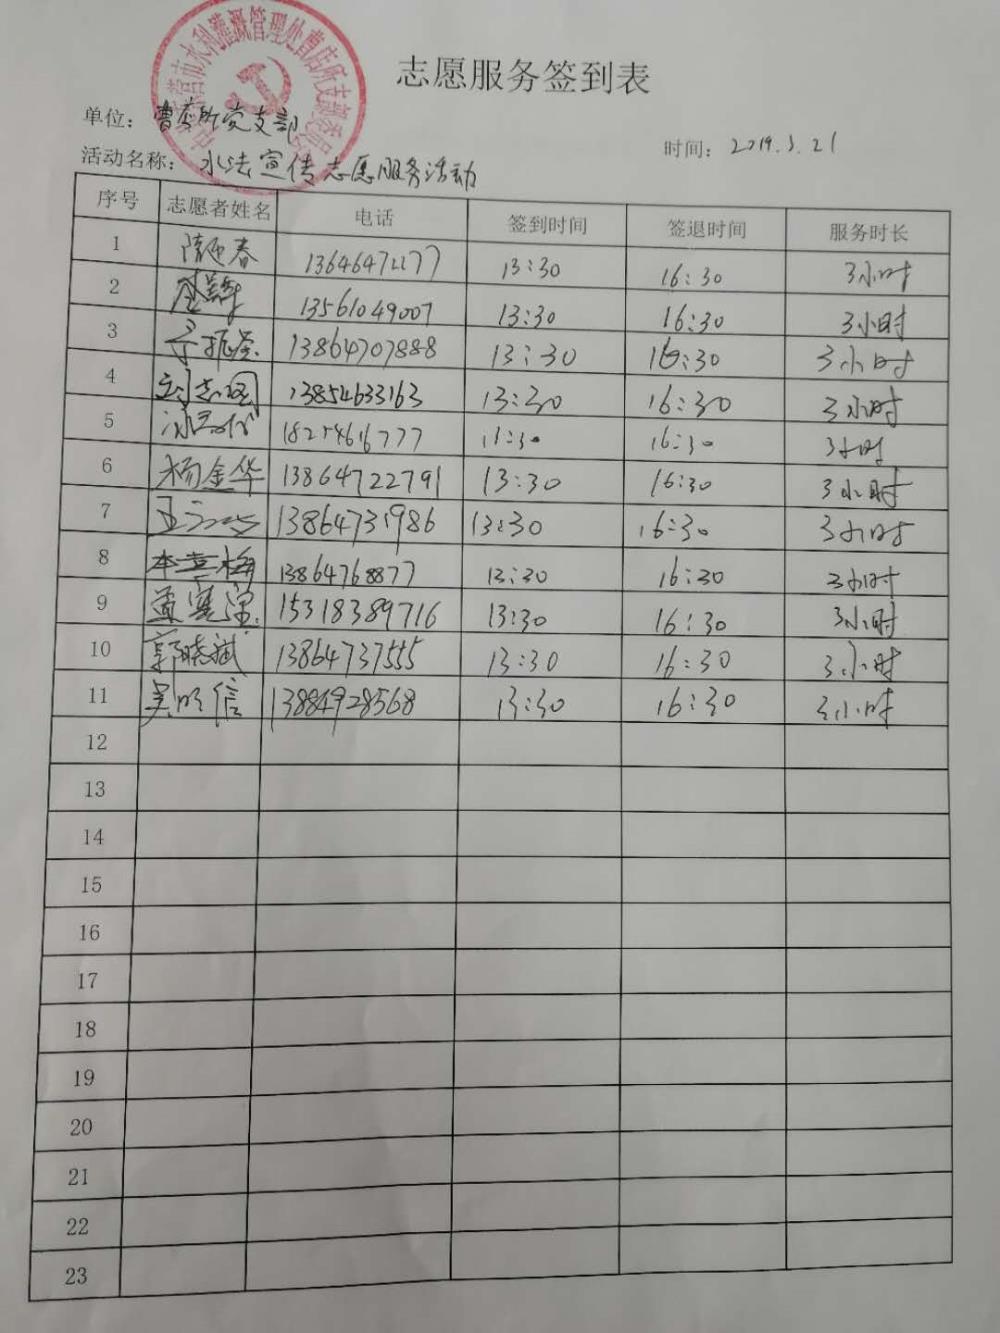 志愿服务签到表
单位：曹店所党支部
时间：2019.3.21
活动名称：水法宣传志愿服务活动
序号 志愿者姓名 电话 签到时间 签退时间 服务时长
1 陈迎春 13646471177 13:30 16:30 3小时
2 13561049007 13:30 16:30 3小时
3 13864707888 13:30 16:30 3小时
4 13854633163 13:30 16:30 3小时
5 18254616777 13:30 16:30 3小时
6 杨金华 13864722791 13:30 16:30 3小时
7 13864731986 13:30 16:30 3小时
8 13864768877 13:30 16:30 3小时
9 15318389716 13:30 16:30 3小时
10 郭晓斌 13864737555 13:30 16:30 3小时
11 吴明信 13884928568 13:30 16:30 3小时
12
13
14
15
16
17
18
19
20
21
22
23